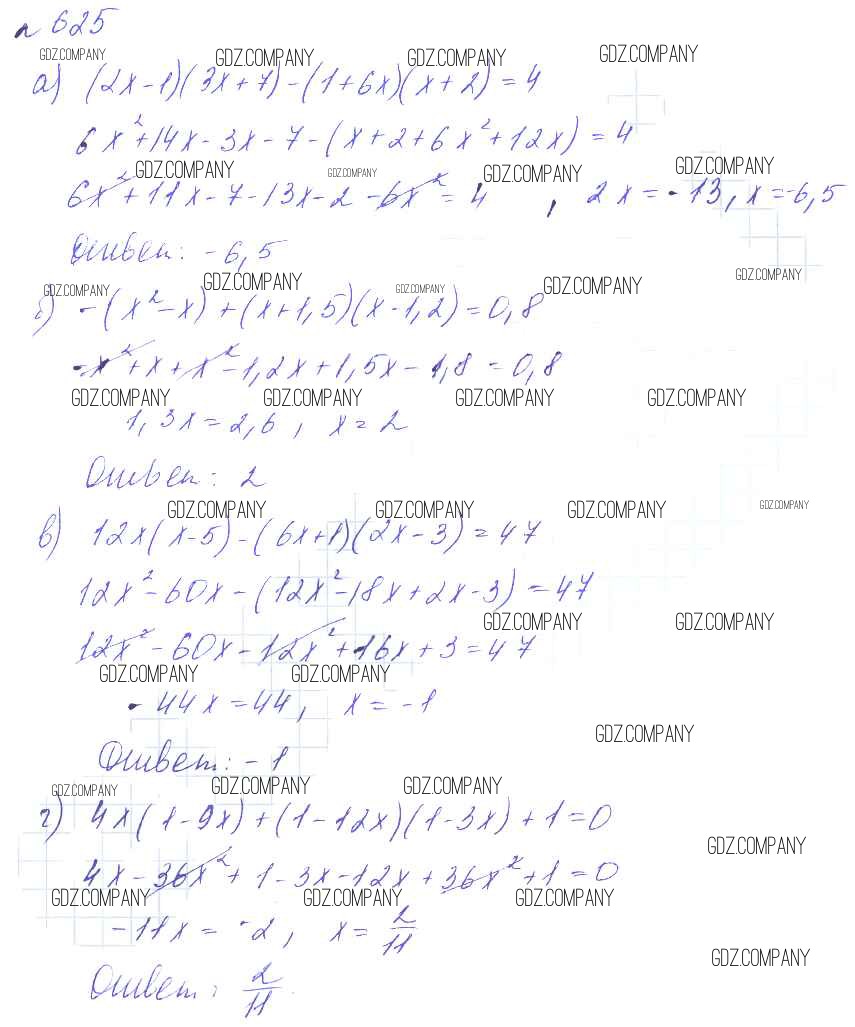 n 625
GDZ.COMPANY GDZ.COMPANY GDZ.COMPANY GDZ.COMPANY
а) (2x-1)(3x+7)-(1+6x)(x+2)=4
6x²+14x-3x-7-(x+2+6x²+12x)=4
GDZ.COMPANY GDZ.COMPANY GDZ.COMPANY GDZ.COMPANY
6x²+11x-7-13x-2-6x²=4, 2x=-13, x=-6,5
Ответ: -6,5
GDZ.COMPANY GDZ.COMPANY GDZ.COMPANY GDZ.COMPANY GDZ.COMPANY
б) -(x²-x)+(x+1,5)(x-1,2)=0,8
-x²+x+x²-1,2x+1,5x-1,8=0,8
GDZ.COMPANY GDZ.COMPANY GDZ.COMPANY GDZ.COMPANY
1,3x=2,6, x=2
Ответ: 2
GDZ.COMPANY GDZ.COMPANY GDZ.COMPANY GDZ.COMPANY
в) 12x(x-5)-(6x+1)(2x-3)=47
12x²-60x-(12x²-18x+2x-3)=47
GDZ.COMPANY GDZ.COMPANY
12x²-60x-12x²+16x+3=47
GDZ.COMPANY GDZ.COMPANY
-44x=44, x=-1
GDZ.COMPANY
Ответ: -1
GDZ.COMPANY GDZ.COMPANY GDZ.COMPANY
г) 4x(1-9x)+(1-12x)(1-3x)+1=0
GDZ.COMPANY
4x-36x²+1-3x-12x+36x²+1=0
GDZ.COMPANY GDZ.COMPANY GDZ.COMPANY
-11x=-2, x=2/11
GDZ.COMPANY
Ответ: 2/11